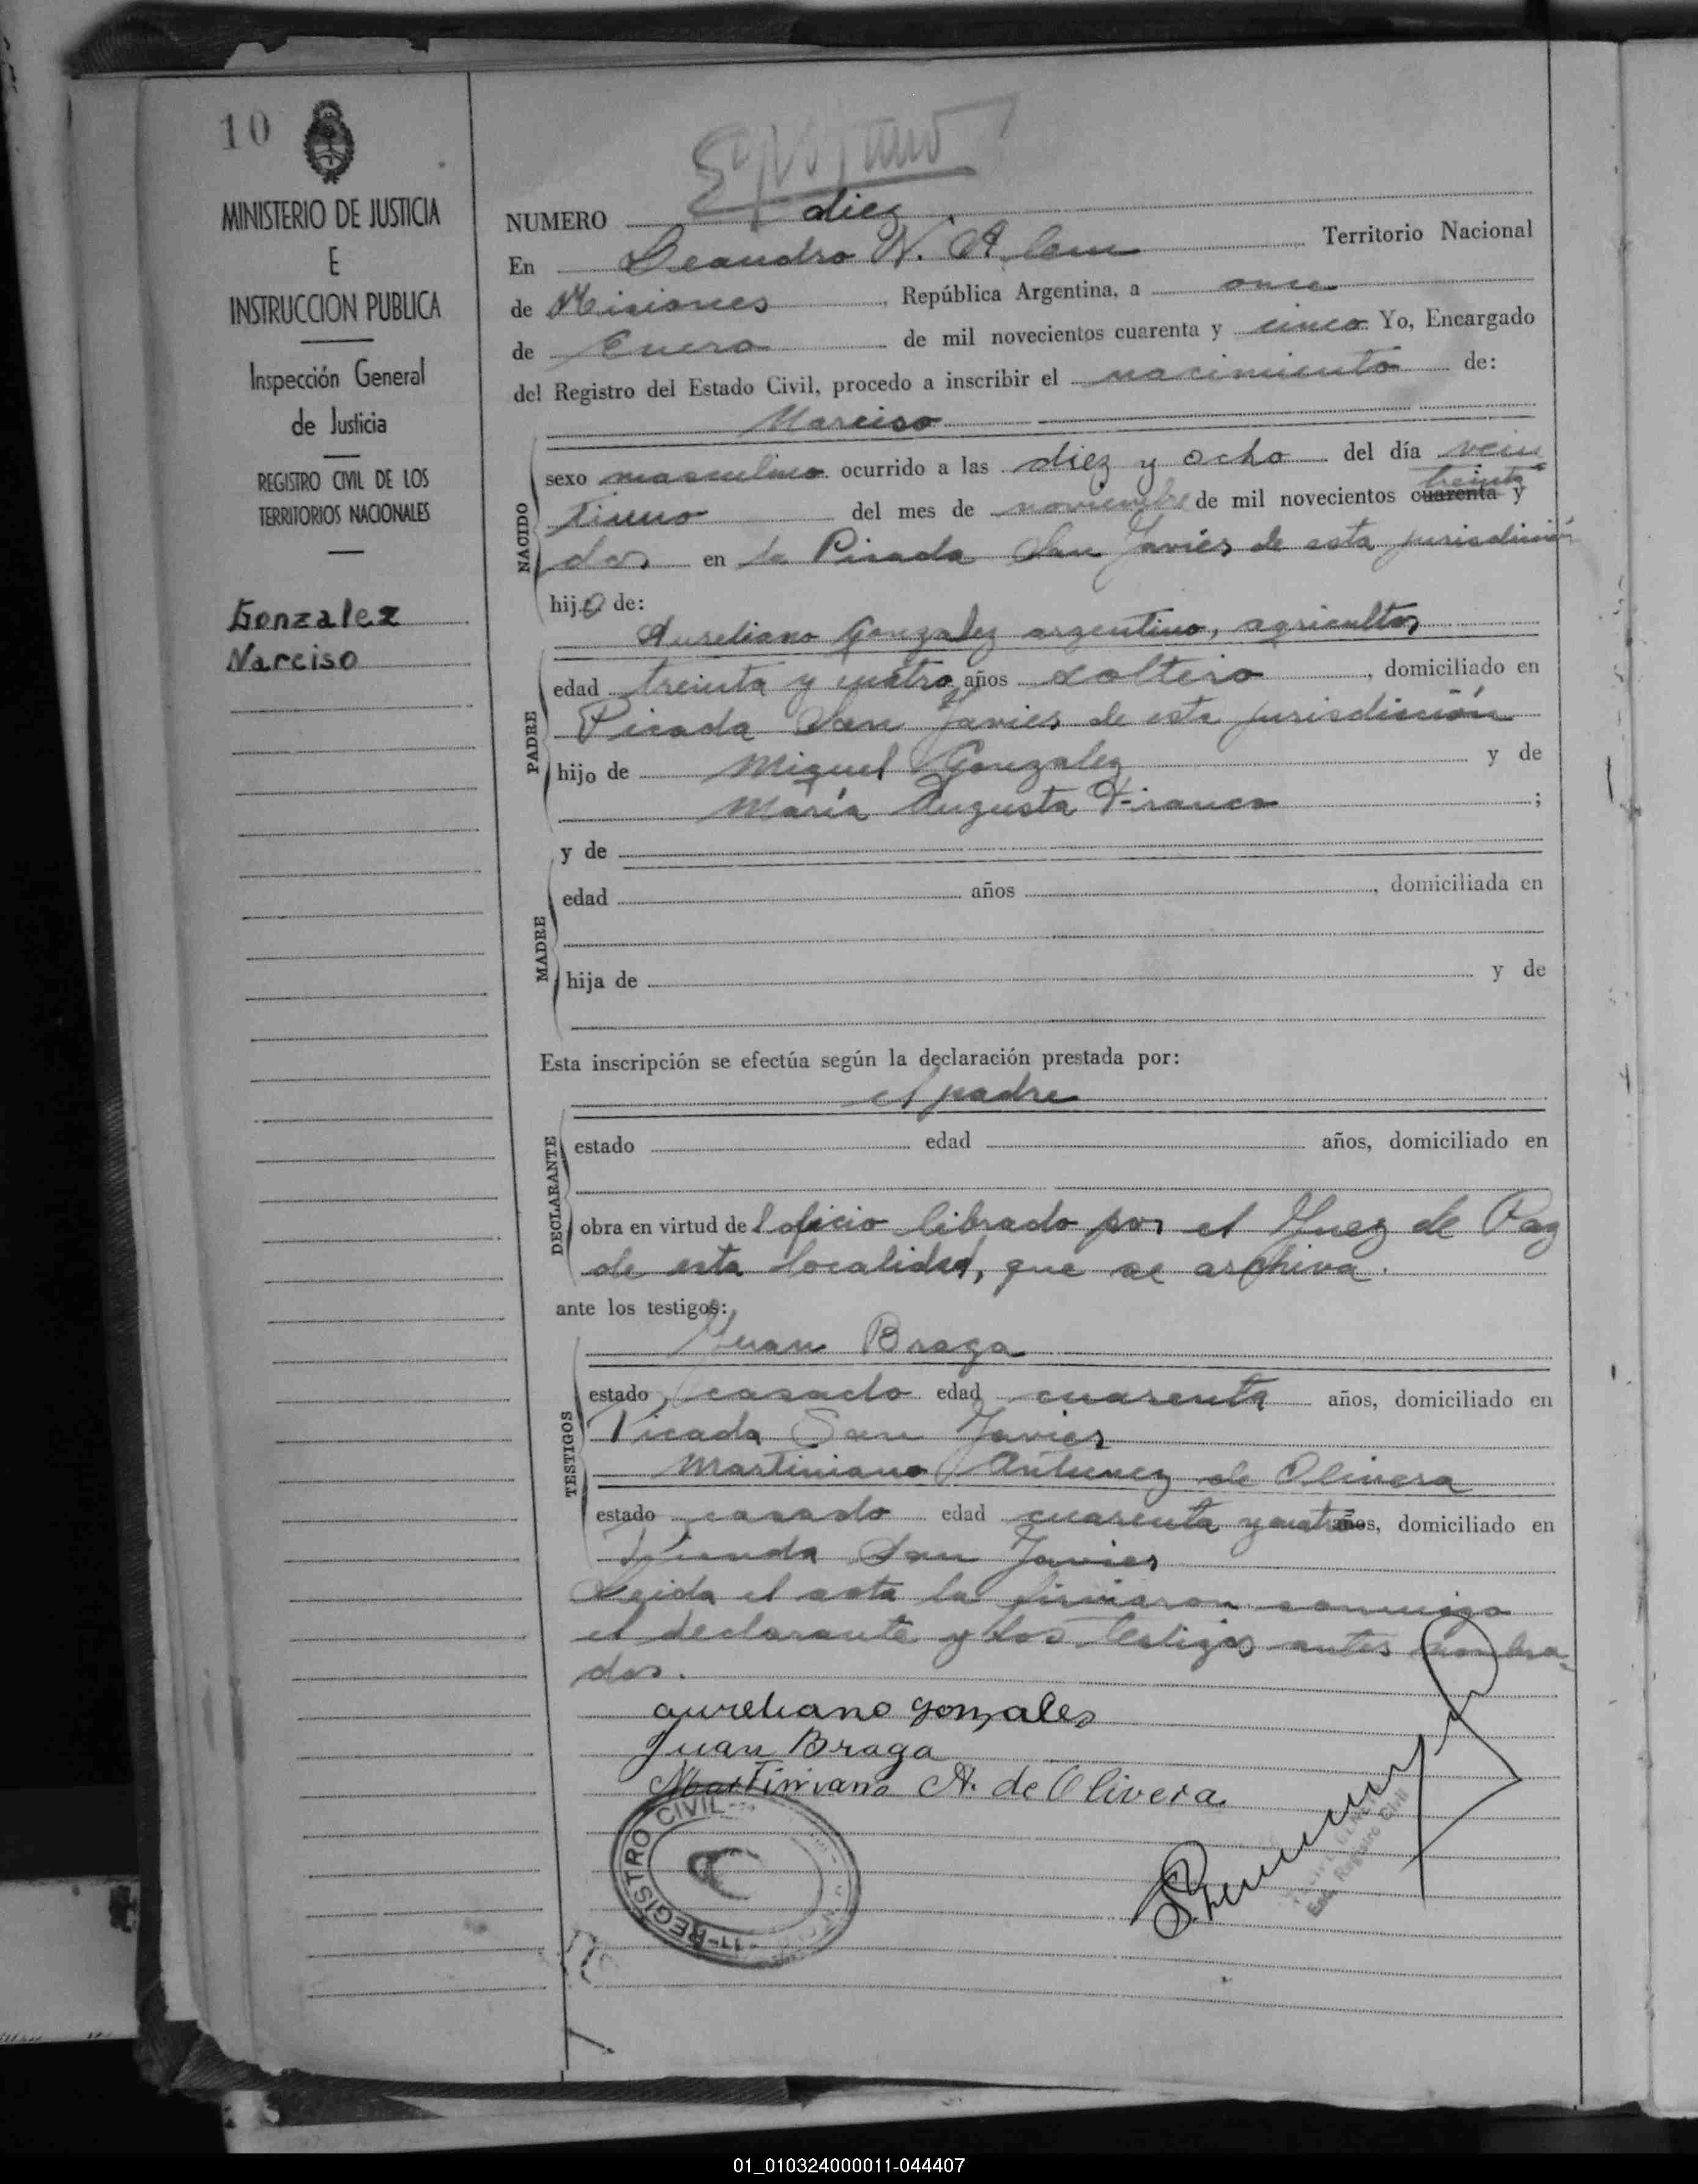 10
MINISTERIO DE JUSTICIA
E
INSTRUCCION PUBLICA
Inspección General
de Justicia
REGISTRO CIVIL DE LOS
TERRITORIOS NACIONALES
Gonzalez
Narciso
NUMERO diez
En Leandro N. Alem Territorio Nacional
de Misiones, República Argentina, a once
de Enero de mil novecientos cuarenta y cinco Yo, Encargado
del Registro del Estado Civil, procedo a inscribir el nacimiento de:
Narciso
NACIDO
sexo masculino ocurrido a las diez y ocho del día vein
treinta
tiuno del mes de noviembre de mil novecientos cuarenta y
dos en la Picada San Javier de esta jurisdicción
hijo de:
Aureliano Gonzalez argentino, agricultor
PADRE
edad treinta y cuatro años soltero, domiciliado en
Picada San Javier de esta jurisdicción
hijo de Miguel Gonzalez y de
María Augusta Franco ;
MADRE
y de
edad años , domiciliada en
hija de y de
Esta inscripción se efectúa según la declaración prestada por:
el padre
DECLARANTE
estado edad años, domiciliado en
obra en virtud del oficio librado por el Juez de Paz
de esta localidad, que se archiva.
ante los testigos:
Juan Braga
TESTIGOS
estado casado edad cuarenta años, domiciliado en
Picada San Javier
Martiniano Antunez de Olivera
estado casado edad cuarenta y cuatro años, domiciliado en
Picada San Javier
Leida el acta la firmaron conmigo
el declarante y los testigos antes nombra-
dos.
aureliano gonzales
Juan Braga
Martiniano A. de Olivera
REGISTRO CIVIL
Enc. Registro Civil
01_010324000011-044407